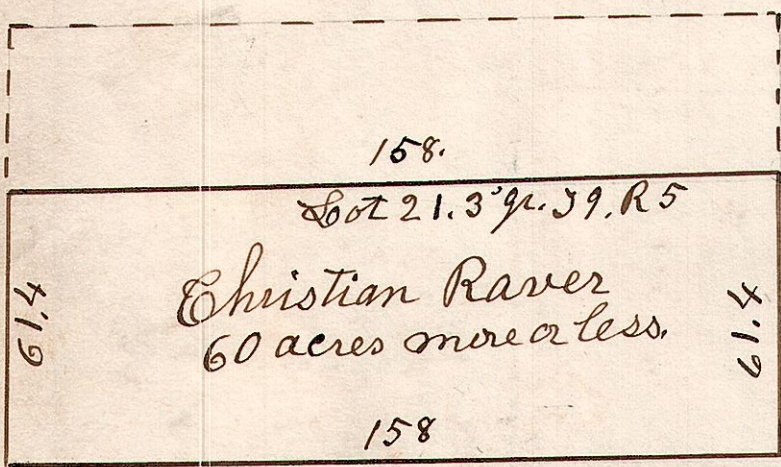 158.
Lot 21. 3 qr. T9. R5
Christian Raver
60 acres more or less.
61.4
61.4
158